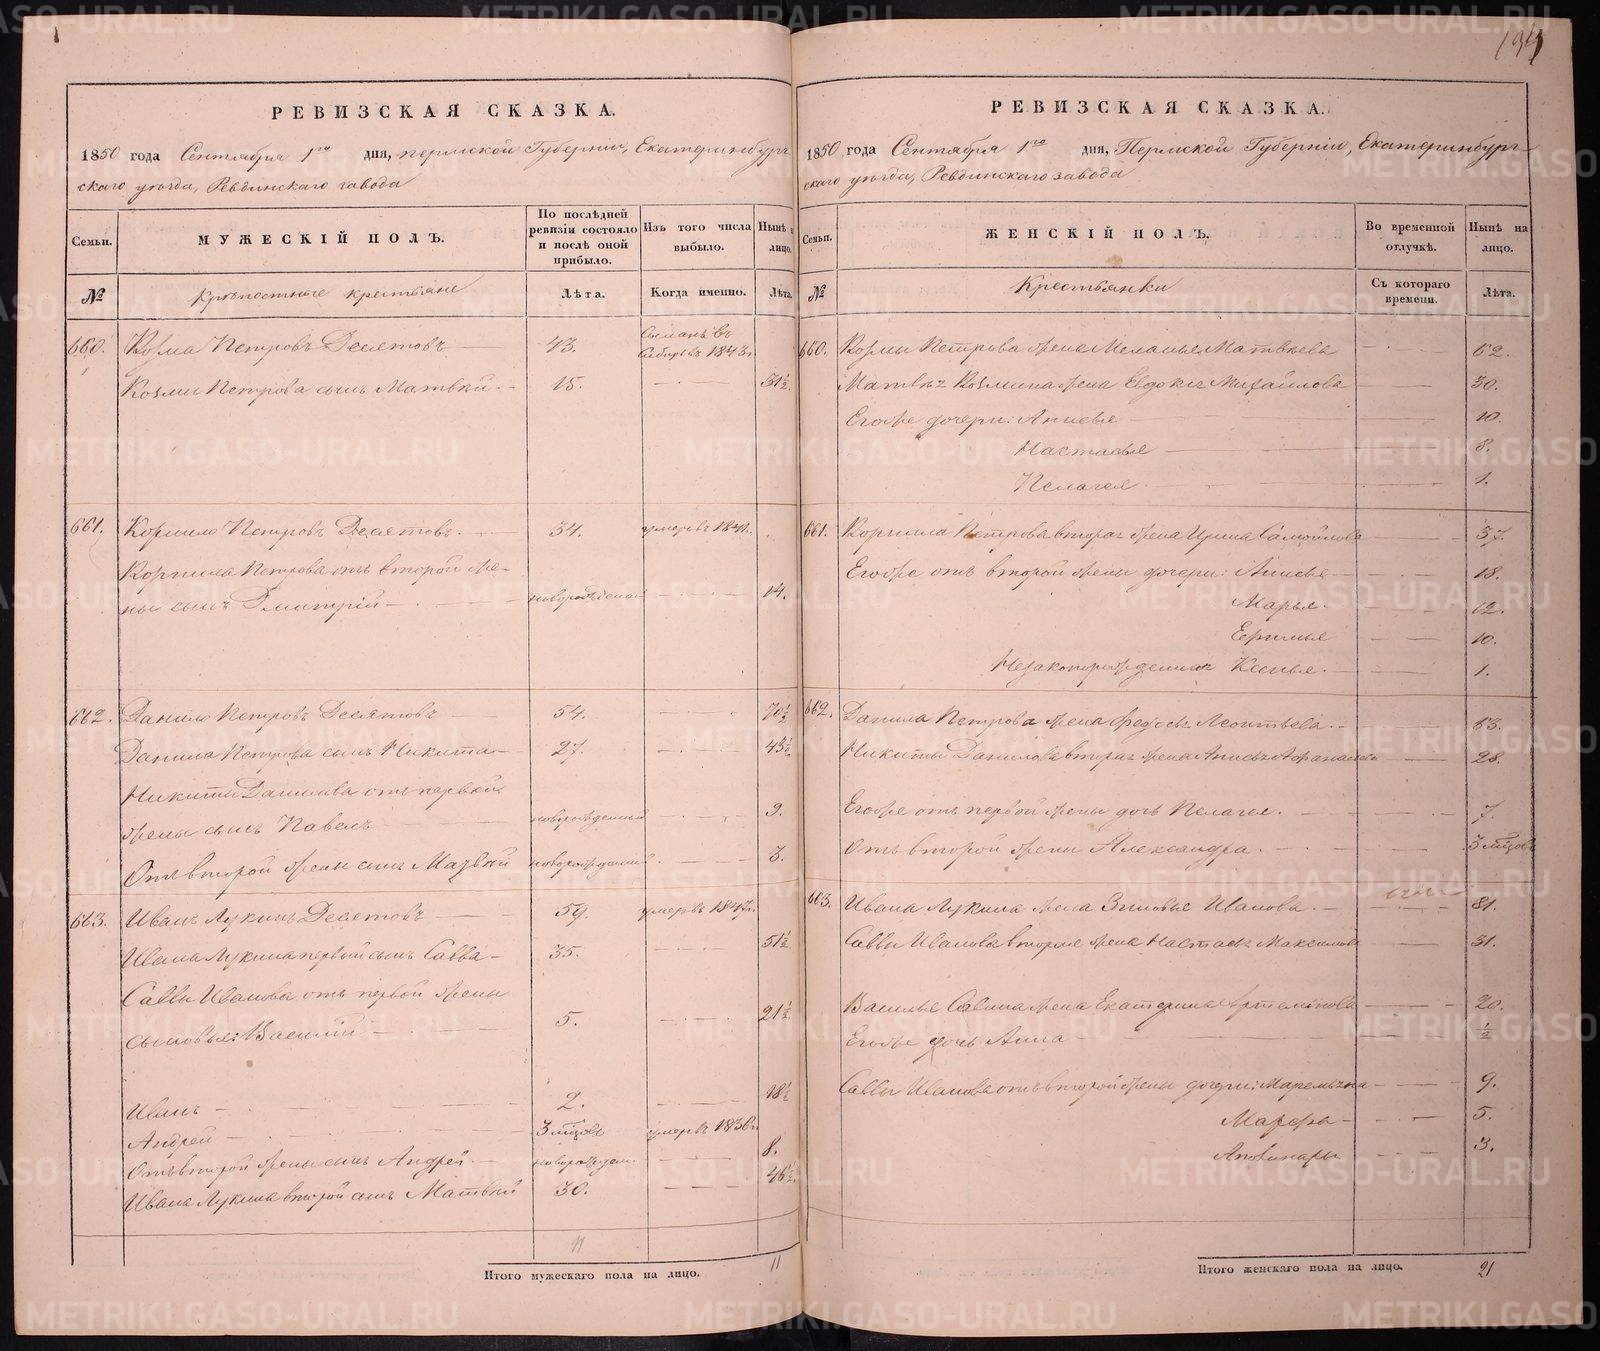 194
РЕВИЗСКАЯ СКАЗКА.
1850 года Сентября 1го дня, пермской Губерніи, Екатеринбург-
скаго уѣзда, Ревдинскаго завода
Семьи.
МУЖЕСКІЙ ПОЛЪ.
По послѣдней ревизіи состояло и послѣ оной прибыло.
Изъ того числа выбыло.
Нынѣ
лицо.
№
Крѣпостные крестьяне
Лѣта.
Когда именно.
Лѣта.
660. Козма Петровъ Десятовъ 43. Сосланъ въ Сибирь въ 1843г.
Козмы Петрова сынъ Матвѣй 15. 31½
661. Корнило Петровъ Десятовъ. 34. умеръ въ 1841г.
Корнила Петрова отъ второй же-
ны сынъ Дмитрій новорожденный 14.
662. Данило Петровъ Десятовъ 54. 70½
Данила Петрова сынъ Никита 27. 43½
Никиты Данилова отъ первой
жены сынъ Павелъ новорожденный 9.
Отъ второй жены сынъ Матвѣй новорожденный 3.
663. Иванъ Лукинъ Десятовъ 59. умеръ въ 1847г.
Ивана Лукина первый сынъ Савва 35. 51½
Саввы Иванова отъ первой жены
сыновья: Василій 5. 21½
Иванъ 2. 18½
Андрей 3 мѣсяцовъ умеръ въ 1836г.
Отъ второй жены сынъ Андрей новорожден. 8.
Ивана Лукина второй сынъ Матвѣй 30. 46½
11
Итого мужескаго пола на лицо. 11
РЕВИЗСКАЯ СКАЗКА.
1850 года Сентября 1го дня, Пермской Губерніи, Екатеринбург-
скаго уѣзда, Ревдинскаго завода
Семьи.
ЖЕНСКІЙ ПОЛЪ.
Во временной отлучкѣ.
Нынѣ на лицо.
№
Крестьянки
Съ котораго времени.
Лѣта.
660. Козмы Петрова жена Меланья Матвѣева 62.
Матвѣя Козмина жена Евдокія Михайлова 30.
Егожъ дочери: Анисья 10.
Настасья 8.
Пелагея 1.
661. Корнила Петрова вторая жена Ирина Самойлова 57.
Егоже отъ второй жены дочери: Анисья 18.
Марья 12.
10.
Незаконорожденная Ксенья 1.
662. Данила Петрова жена Федосья Леонтьева. 63.
Никиты Данилова вторая жена Анисья Афанасьева 28.
Егоже отъ первой жены дочь Пелагея. 7.
Отъ второй жены Александра. 3 мѣсяцовъ
663. Ивана Лукина жена Зиновья Иванова. 81.
Саввы Иванова вторая жена Настасья Максимова 31.
Василья Савина жена Екатерина Артемонова 20.
Егоже дочь Анна ½
Саввы Иванова отъ второй жены дочери: Маремьяна 9.
Марфа 5.
3.
Итого женскаго пола на лицо. 21
METRIKI.GASO-URAL.RU